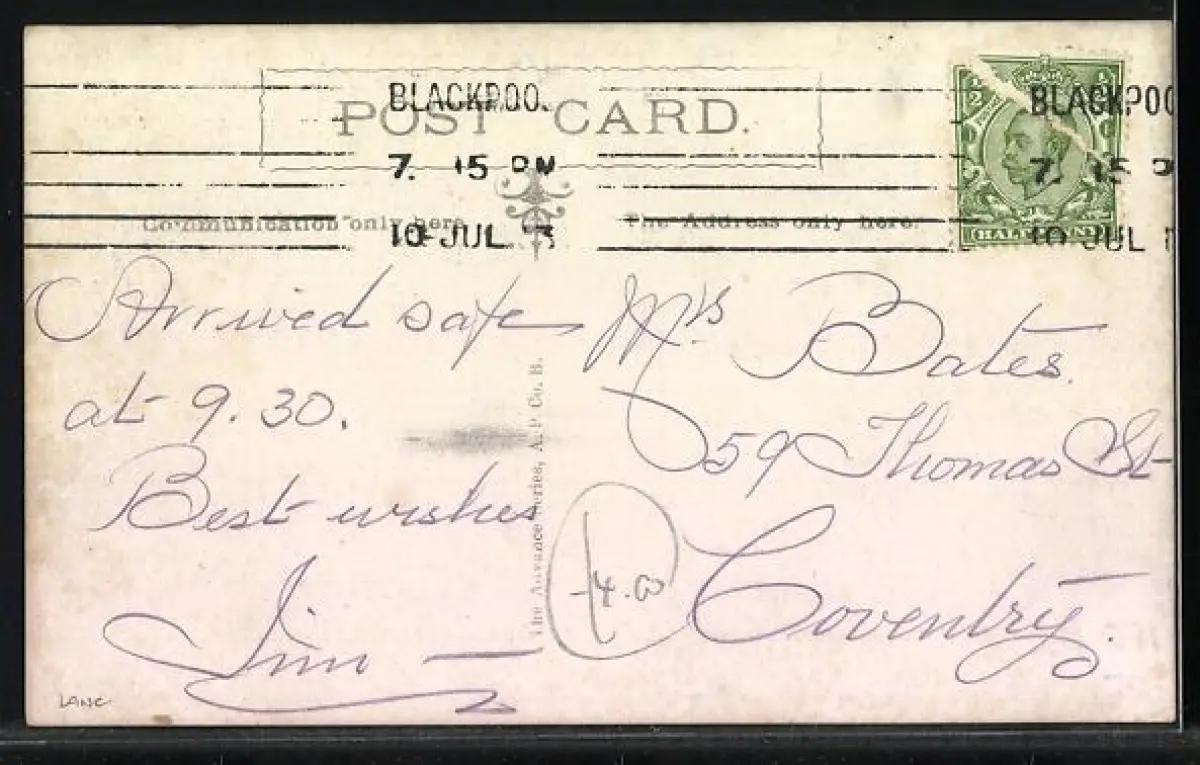 BLACKPOO.
POST CARD.
7. 15 PM
10 JUL
BLACKPOO
7. 15 P
10 JUL
½ ½
HALFPENNY
Communication only here
The Address only here
Arrived safe
at 9.30.
Best wishes
Jim
Mrs. Bates.
59 Thomas St
Coventry.
The Advance Series, A. P. Co. B.
4.00
LANC